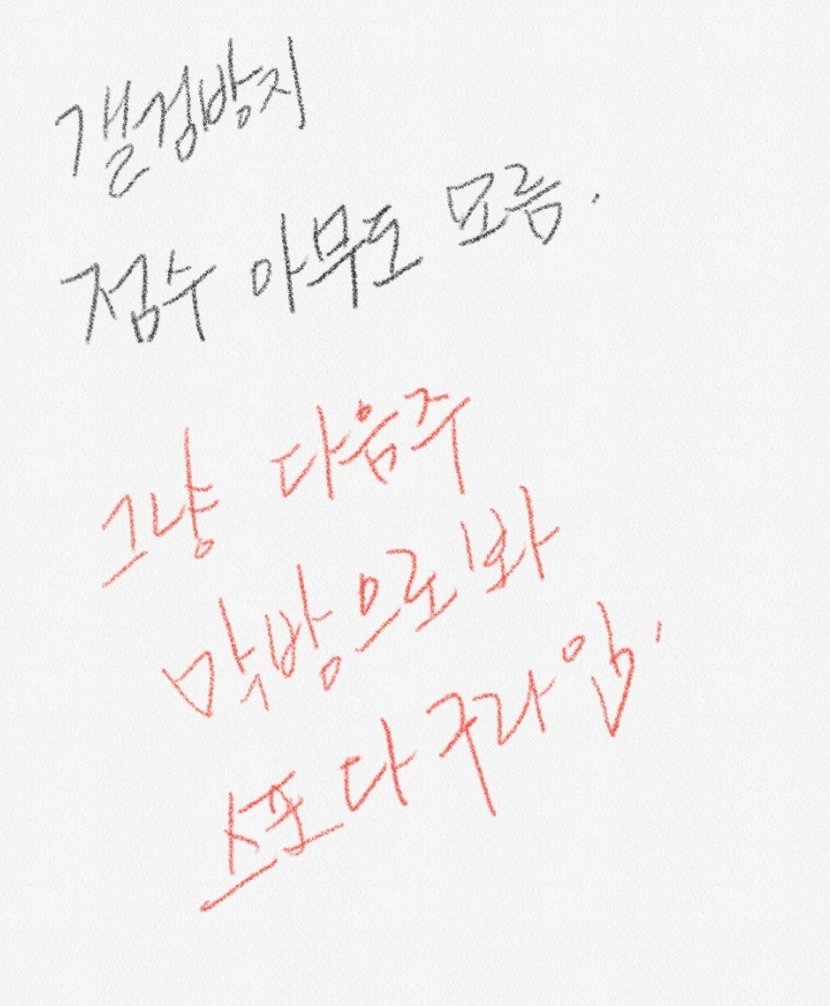 갤검방지
점수 아무도 모름.
그냥 다음주
막방으로 봐
스포 다 구라임.